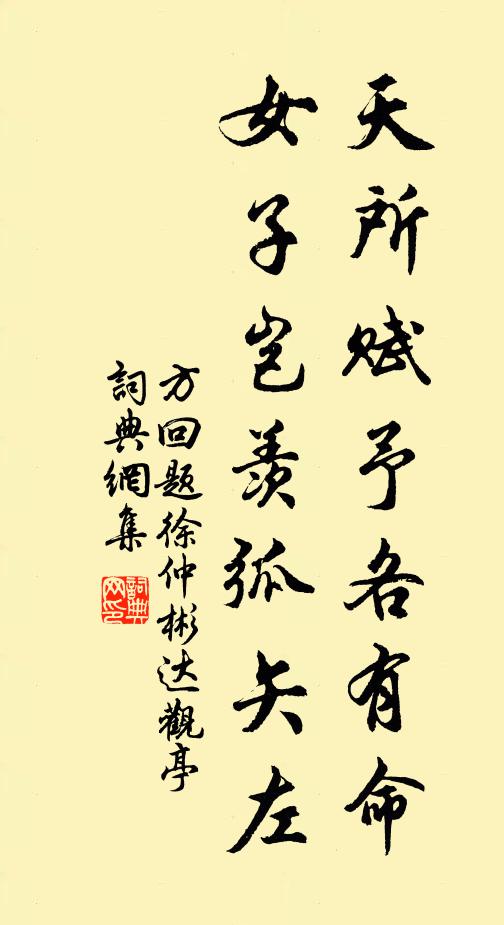 天所赋予各有命
女子岂羡弧矢左
方回题徐仲彬达觀亭
詞典網集
詞典網印